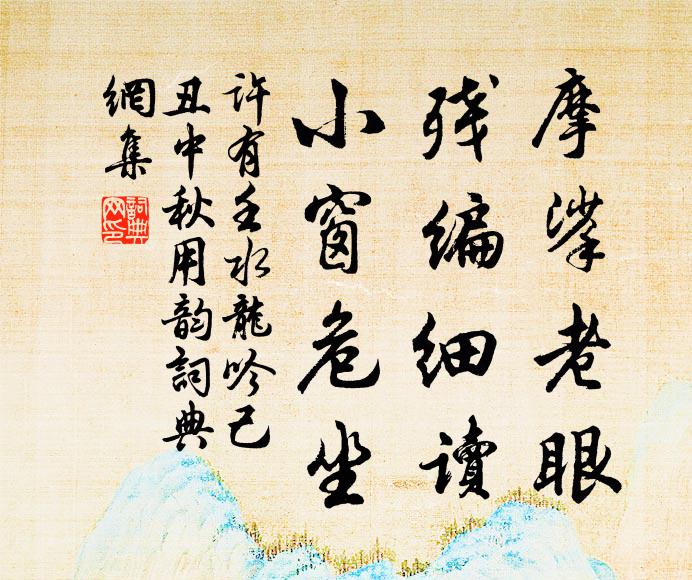 摩挲老眼
残编细读
小窗危坐
许有壬水龍吟己
丑中秋用韵詞典
網集
詞典网印